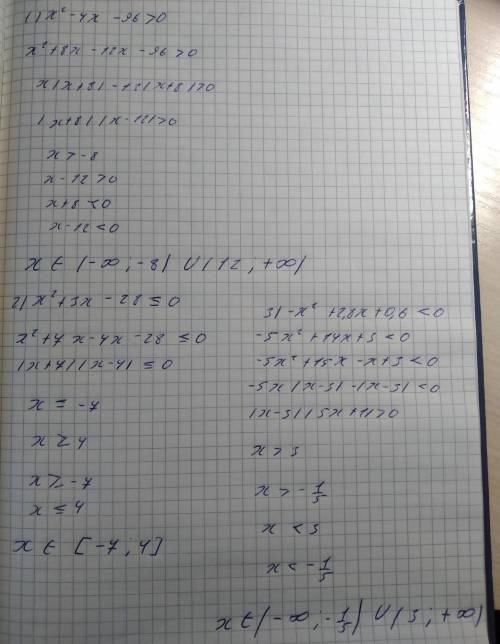 1) x² - 4x - 96 > 0
x² + 8x - 12x - 96 > 0
x(x+8) - 12(x+8) > 0
(x+8)(x-12) > 0
x > -8
x - 12 > 0
x + 8 < 0
x - 12 < 0
x ∈ (-∞; -8) ∩ (12; +∞)
2) x² + 3x - 28 ≤ 0
x² + 7x - 4x - 28 ≤ 0
(x+7)(x-4) ≤ 0
x = -7
x ≥ 4
x ≥ -7
x ≤ 4
x ∈ [-7; 4]
3) -x² + 2,8x + 0,6 < 0
-5x² + 14x + 3 < 0
-5x² + 15x - x + 3 < 0
-5x(x-3) - (x-3) < 0
(x-3)(5x+1) > 0
x > 3
x > -1/5
x < 3
x < -1/5
x ∈ (-∞; -1/5) ∩ (3; +∞)